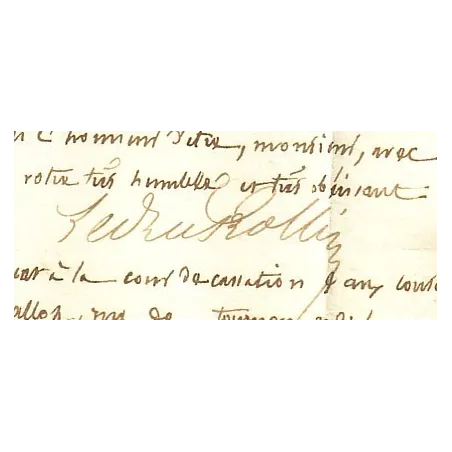 l'honneur d'être, monsieur, avec
votre très humble et très obéissant
Ledru Rollin
à la cour de cassation & aux
de